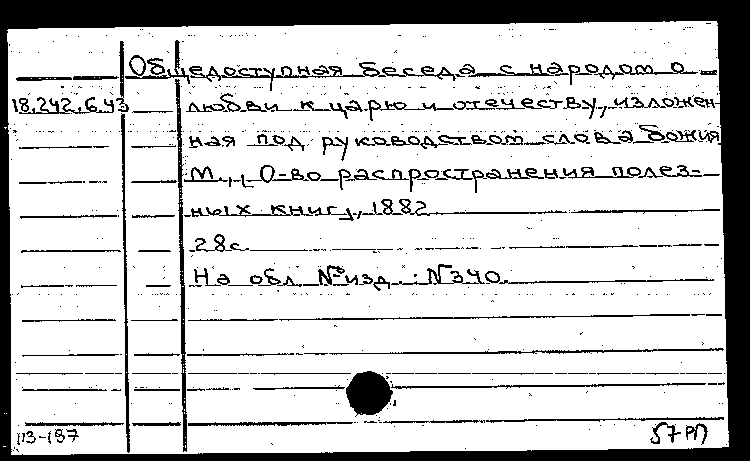 Общедоступная беседа с народом о
18.242.6.43 любви к царю и отечеству, изложен-
ная под руководством слова божия
М., О-во распространения полез-
ных книг, 1882
28с.
На обл. № изд.: N340.
113-187 57-РП